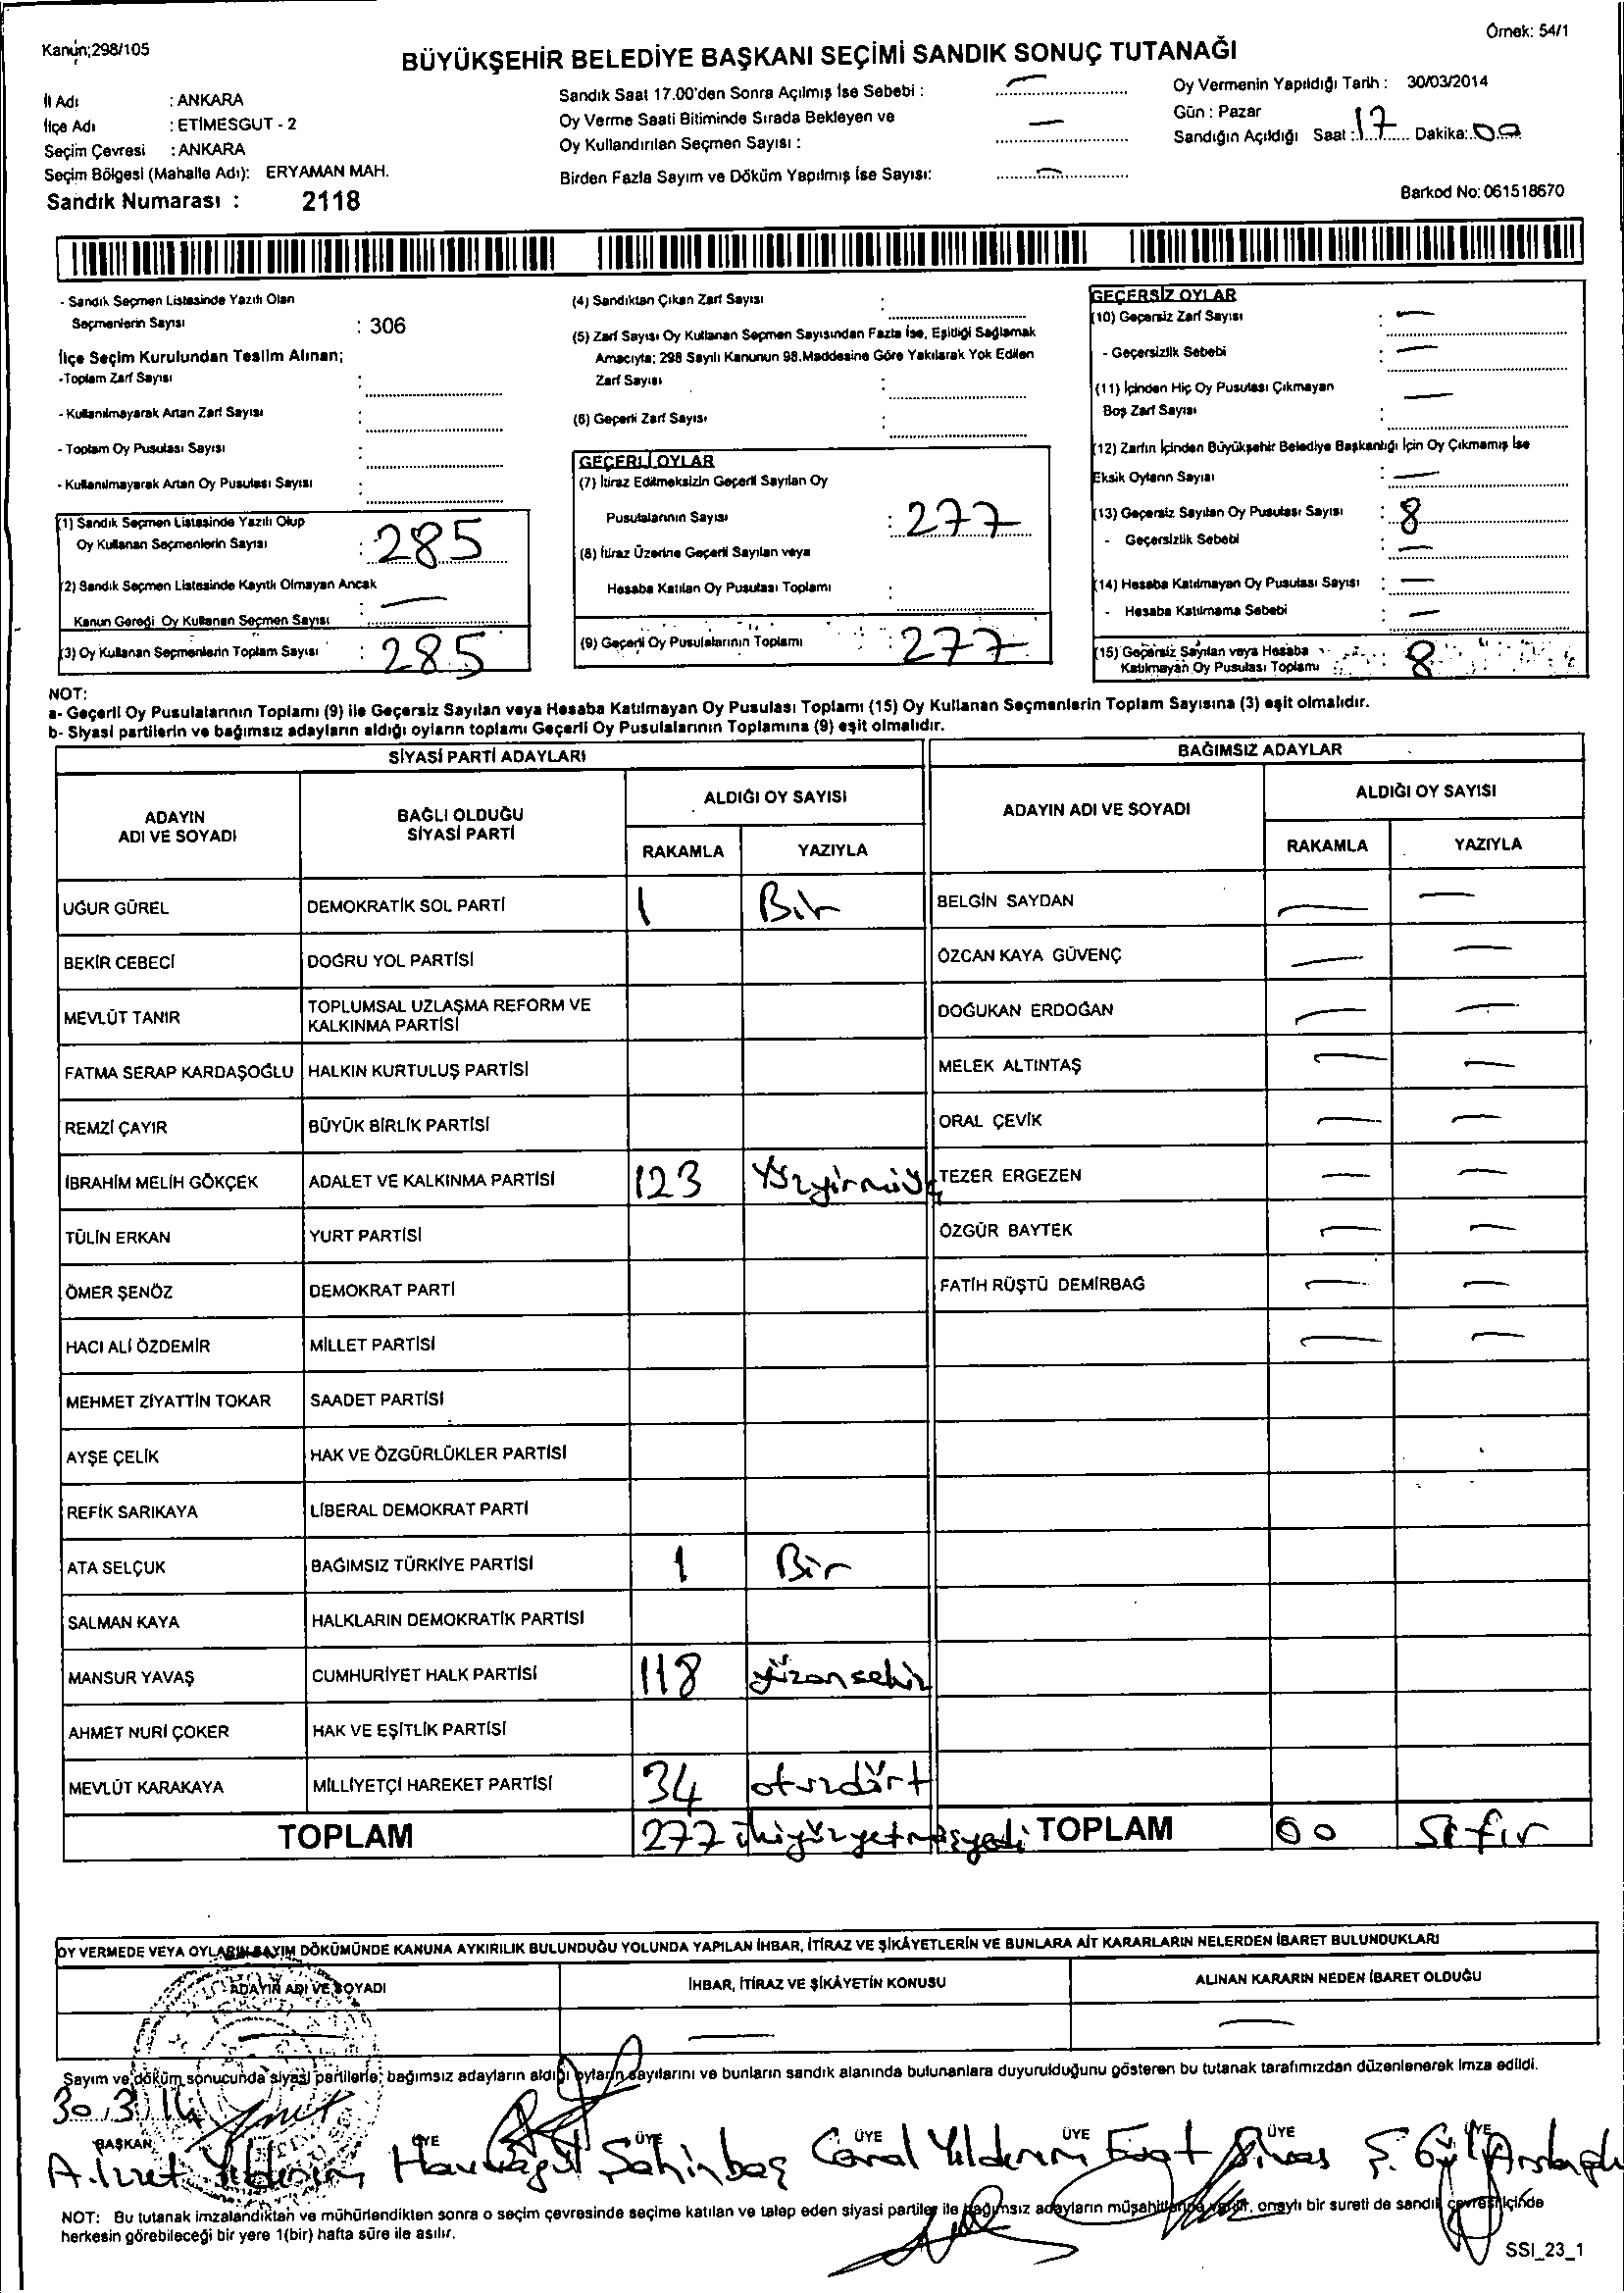 Kanun;298/105
Örnek: 54/1
BÜYÜKŞEHİR BELEDİYE BAŞKANI SEÇİMİ SANDIK SONUÇ TUTANAĞI
İl Adı : ANKARA
İlçe Adı : ETİMESGUT - 2
Seçim Çevresi : ANKARA
Seçim Bölgesi (Mahalle Adı): ERYAMAN MAH.
Sandık Numarası : 2118
Sandık Saat 17.00'den Sonra Açılmış İse Sebebi : —
Oy Verme Saati Bitiminde Sırada Bekleyen ve
Oy Kullandırılan Seçmen Sayısı : —
Birden Fazla Sayım ve Döküm Yapılmış İse Sayısı: —
Oy Vermenin Yapıldığı Tarih : 30/03/2014
Gün : Pazar
Sandığın Açıldığı Saat : 17 Dakika: 00
Barkod No: 061518670
- Sandık Seçmen Listesinde Yazılı Olan
Seçmenlerin Sayısı : 306
İlçe Seçim Kurulundan Teslim Alınan;
-Toplam Zarf Sayısı :
- Kullanılmayarak Artan Zarf Sayısı :
- Toplam Oy Pusulası Sayısı :
- Kullanılmayarak Artan Oy Pusulası Sayısı :
(1) Sandık Seçmen Listesinde Yazılı Olup
Oy Kullanan Seçmenlerin Sayısı : 285
(2) Sandık Seçmen Listesinde Kayıtlı Olmayan Ancak
Kanun Gereği Oy Kullanan Seçmen Sayısı : —
(3) Oy Kullanan Seçmenlerin Toplam Sayısı : 285
(4) Sandıktan Çıkan Zarf Sayısı :
(5) Zarf Sayısı Oy Kullanan Seçmen Sayısından Fazla İse, Eşitliği Sağlamak
Amacıyla; 298 Sayılı Kanunun 98.Maddesine Göre Yakılarak Yok Edilen
Zarf Sayısı :
(6) Geçerli Zarf Sayısı :
GEÇERLİ OYLAR
(7) İtiraz Edilmeksizin Geçerli Sayılan Oy
Pusulalarının Sayısı : 277
(8) İtiraz Üzerine Geçerli Sayılan veya
Hesaba Katılan Oy Pusulası Toplamı :
(9) Geçerli Oy Pusulalarının Toplamı : 277
GEÇERSİZ OYLAR
(10) Geçersiz Zarf Sayısı : —
- Geçersizlik Sebebi : —
(11) İçinden Hiç Oy Pusulası Çıkmayan
Boş Zarf Sayısı : —
(12) Zarfın İçinden Büyükşehir Belediye Başkanlığı İçin Oy Çıkmamış İse
Eksik Oyların Sayısı : —
(13) Geçersiz Sayılan Oy Pusulası Sayısı : 8
- Geçersizlik Sebebi : —
(14) Hesaba Katılmayan Oy Pusulası Sayısı : —
- Hesaba Katılmama Sebebi : —
(15) Geçersiz Sayılan veya Hesaba
Katılmayan Oy Pusulası Toplamı : 8
NOT:
a- Geçerli Oy Pusulalarının Toplamı (9) ile Geçersiz Sayılan veya Hesaba Katılmayan Oy Pusulası Toplamı (15) Oy Kullanan Seçmenlerin Toplam Sayısına (3) eşit olmalıdır.
b- Siyasi partilerin ve bağımsız adayların aldığı oyların toplamı Geçerli Oy Pusulalarının Toplamına (9) eşit olmalıdır.
SİYASİ PARTİ ADAYLARI
BAĞIMSIZ ADAYLAR
ADAYIN
ADI VE SOYADI
BAĞLI OLDUĞU
SİYASİ PARTİ
ALDIĞI OY SAYISI
RAKAMLA YAZIYLA
ADAYIN ADI VE SOYADI
ALDIĞI OY SAYISI
RAKAMLA YAZIYLA
UĞUR GÜREL DEMOKRATİK SOL PARTİ 1 Bir BELGİN SAYDAN — —
BEKİR CEBECİ DOĞRU YOL PARTİSİ ÖZCAN KAYA GÜVENÇ — —
MEVLÜT TANIR TOPLUMSAL UZLAŞMA REFORM VE
KALKINMA PARTİSİ DOĞUKAN ERDOĞAN — —
FATMA SERAP KARDAŞOĞLU HALKIN KURTULUŞ PARTİSİ MELEK ALTINTAŞ — —
REMZİ ÇAYIR BÜYÜK BİRLİK PARTİSİ ORAL ÇEVİK — —
İBRAHİM MELİH GÖKÇEK ADALET VE KALKINMA PARTİSİ 123 Yüzyirmiüç TEZER ERGEZEN — —
TÜLİN ERKAN YURT PARTİSİ ÖZGÜR BAYTEK — —
ÖMER ŞENÖZ DEMOKRAT PARTİ FATİH RÜŞTÜ DEMİRBAĞ — —
HACI ALİ ÖZDEMİR MİLLET PARTİSİ — —
MEHMET ZİYATTİN TOKAR SAADET PARTİSİ
AYŞE ÇELİK HAK VE ÖZGÜRLÜKLER PARTİSİ
REFİK SARIKAYA LİBERAL DEMOKRAT PARTİ
ATA SELÇUK BAĞIMSIZ TÜRKİYE PARTİSİ 1 Bir
SALMAN KAYA HALKLARIN DEMOKRATİK PARTİSİ
MANSUR YAVAŞ CUMHURİYET HALK PARTİSİ 118 yüzonsekiz
AHMET NURİ ÇOKER HAK VE EŞİTLİK PARTİSİ
MEVLÜT KARAKAYA MİLLİYETÇİ HAREKET PARTİSİ 34 otuzdört
TOPLAM 277 ikiyüzyetmişyedi TOPLAM 00 Sıfır
OY VERMEDE VEYA OYLARIN SAYIM DÖKÜMÜNDE KANUNA AYKIRILIK BULUNDUĞU YOLUNDA YAPILAN İHBAR, İTİRAZ VE ŞİKÂYETLERİN VE BUNLARA AİT KARARLARIN NELERDEN İBARET BULUNDUKLARI
ADAYIN ADI VE SOYADI İHBAR, İTİRAZ VE ŞİKÂYETİN KONUSU ALINAN KARARIN NEDEN İBARET OLDUĞU
— — —
Sayım ve döküm sonucunda siyasi partilerle, bağımsız adayların aldığı oyların sayılarını ve bunların sandık alanında bulunanlara duyurulduğunu gösteren bu tutanak tarafımızdan düzenlenerek imza edildi.
30.3.14
BAŞKAN ÜYE ÜYE ÜYE ÜYE ÜYE ÜYE
A.İzzet Yıldırım Havvagül Şahinbaş Canal Yıldırım Fuat Sivas Ş. Gül Arslan
NOT: Bu tutanak imzalandıktan ve mühürlendikten sonra o seçim çevresinde seçime katılan ve talep eden siyasi partiler ile bağımsız adayların müşahitlerine verilir, onaylı bir sureti de sandık çevresi içinde
herkesin görebileceği bir yere 1(bir) hafta süre ile asılır.
SSI_23_1